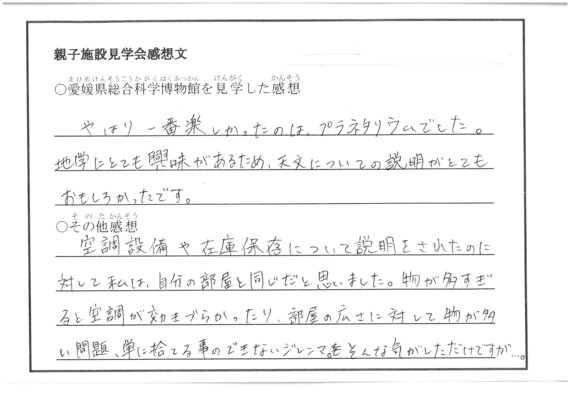 親子施設見学会感想文
えひめけんそうごうかがくはくぶつかん けんがく かんそう
○愛媛県総合科学博物館を見学した感想
やはり一番楽しかったのは、プラネタリウムでした。
地学にとても興味があるため、天文についての説明がとても
おもしろかったです。
そのたかんそう
○その他感想
空調設備や在庫保存について説明をされたのに
対して私は、自分の部屋と同じだと思いました。物が多すぎ
ると空調が効きづらかったり、部屋の広さに対して物が多
い問題、単に捨てる事のできないジレンマ。をそんな気がしただけですが…。